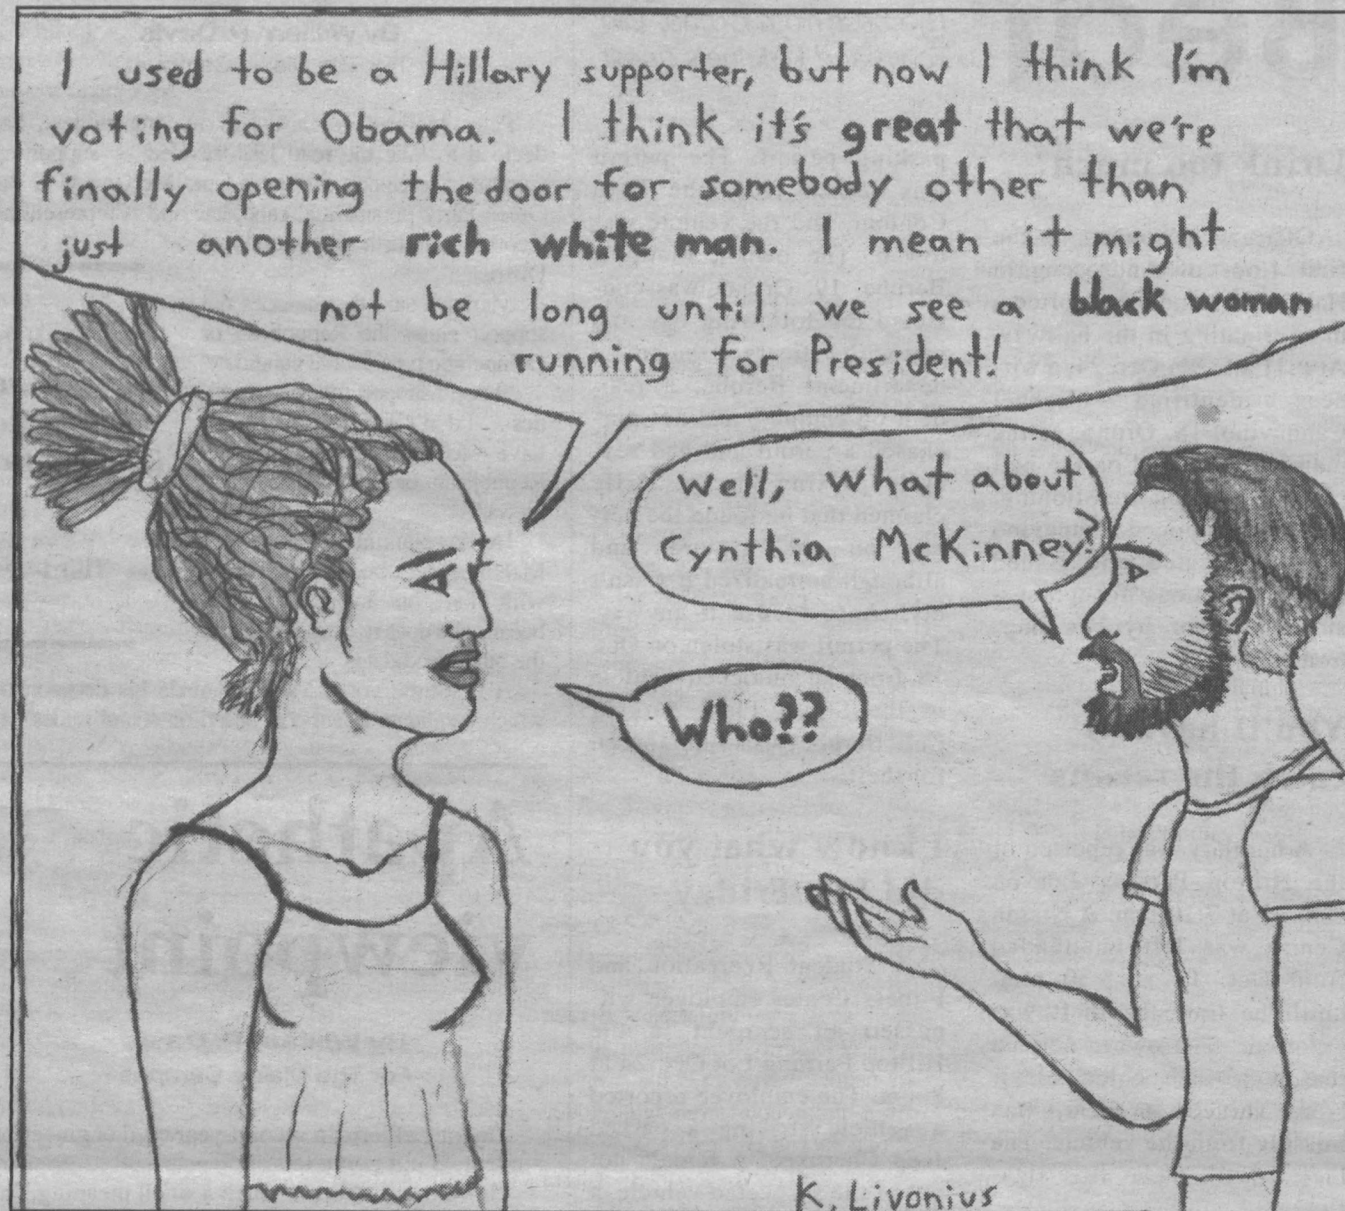 I used to be a Hillary supporter, but now I think I'm
voting for Obama. I think it's great that we're
finally opening the door for somebody other than
just another rich white man. I mean it might
not be long until we see a black woman
running for President!
Well, what about
Cynthia McKinney?
Who??
K. Livonius